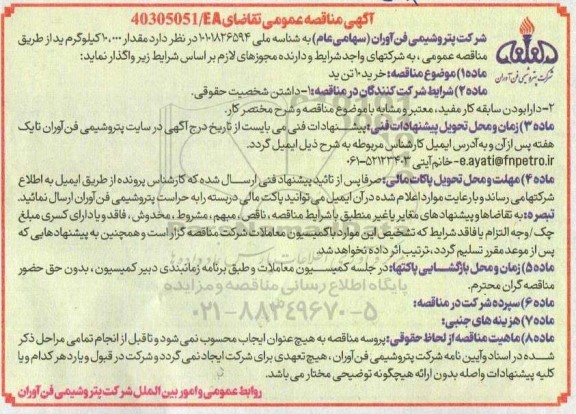 آگهی مناقصه عمومی تقاضای 40305051/EA
شرکت پتروشیمی فن آوران (سهامی عام) به شناسه ملی ۱۰۱۰۱۸۳۶۵۹۴ در نظر دارد مقدار ۱۰,۰۰۰ کیلوگرم ید از طریق
مناقصه عمومی ، به شرکتهای واجد شرایط و دارنده مجوزهای لازم بر اساس شرایط زیر واگذار نماید:
شرکت پتروشیمی فن آوران
ماده ۱) موضوع مناقصه: خرید ۱۰ تن ید
ماده ۲) شرایط شرکت کنندگان در مناقصه: ۱- داشتن شخصیت حقوقی.
۲- دارا بودن سابقه کار مفید ، معتبر و مشابه با موضوع مناقصه و شرح مختصر کار.
ماده ۳) زمان و محل تحویل پیشنهادات فنی: پیشنهادات فنی می بایست از تاریخ درج آگهی در سایت پتروشیمی فن آوران تا یک
هفته پس از آن و به آدرس ایمیل کارشناس مربوطه به شرح ذیل ایمیل گردد.
e.ayati@fnpetro.ir - خانم آیتی ۵۲۲۳۴۰۳-۰۶۱
ماده ۴) مهلت و محل تحویل پاکات مالی: صرفا پس از تائید پیشنهاد فنی ارسال شده که کارشناس پرونده از طریق ایمیل به اطلاع
شرکتها می رساند و با رعایت موارد اعلام شده در آن ایمیل می توانید پاکت مالی دربسته را به حراست پتروشیمی فن آوران ارسال نمائید.
تبصره: به تقاضاها و پیشنهاد های مغایر یا غیر منطبق با شرایط مناقصه ، ناقص ، مبهم ، مشروط ، مخدوش ، فاقد و یا دارای کسری مبلغ
چک / وجه التزام یا فاقد شرایط که تشخیص این موارد با کمیسیون معاملات شرکت مناقصه گزار است و همچنین به پیشنهادهایی که
پس از موعد مقرر تسلیم گردد ، ترتیب اثر داده نخواهد شد.
ماده ۵) زمان و محل بازگشایی پاکتها: در جلسه کمیسیون معاملات و طبق برنامه زمانبندی دبیر کمیسیون ، بدون حق حضور
مناقصه گران محترم.
پایگاه اطلاع رسانی مناقصه و مزایده
ماده ۶) سپرده شرکت در مناقصه:
۰۲۱-۸۸۳۴۹۶۷۰-۵
ماده ۷) هزینه های جنبی:
ماده ۸) ماهیت مناقصه از لحاظ حقوقی: پروسه مناقصه به هیچ عنوان ایجاب محسوب نمی شود و تا قبل از انجام تمامی مراحل ذکر
شده در اسناد و آیین نامه شرکت پتروشیمی فن آوران ، هیچ تعهدی برای شرکت ایجاد نمی گردد و شرکت در قبول و یا رد هر کدام و یا
کلیه پیشنهادات واصله بدون ارائه هیچگونه توضیحی مختار می باشد.
روابط عمومی و امور بین الملل شرکت پتروشیمی فن آوران